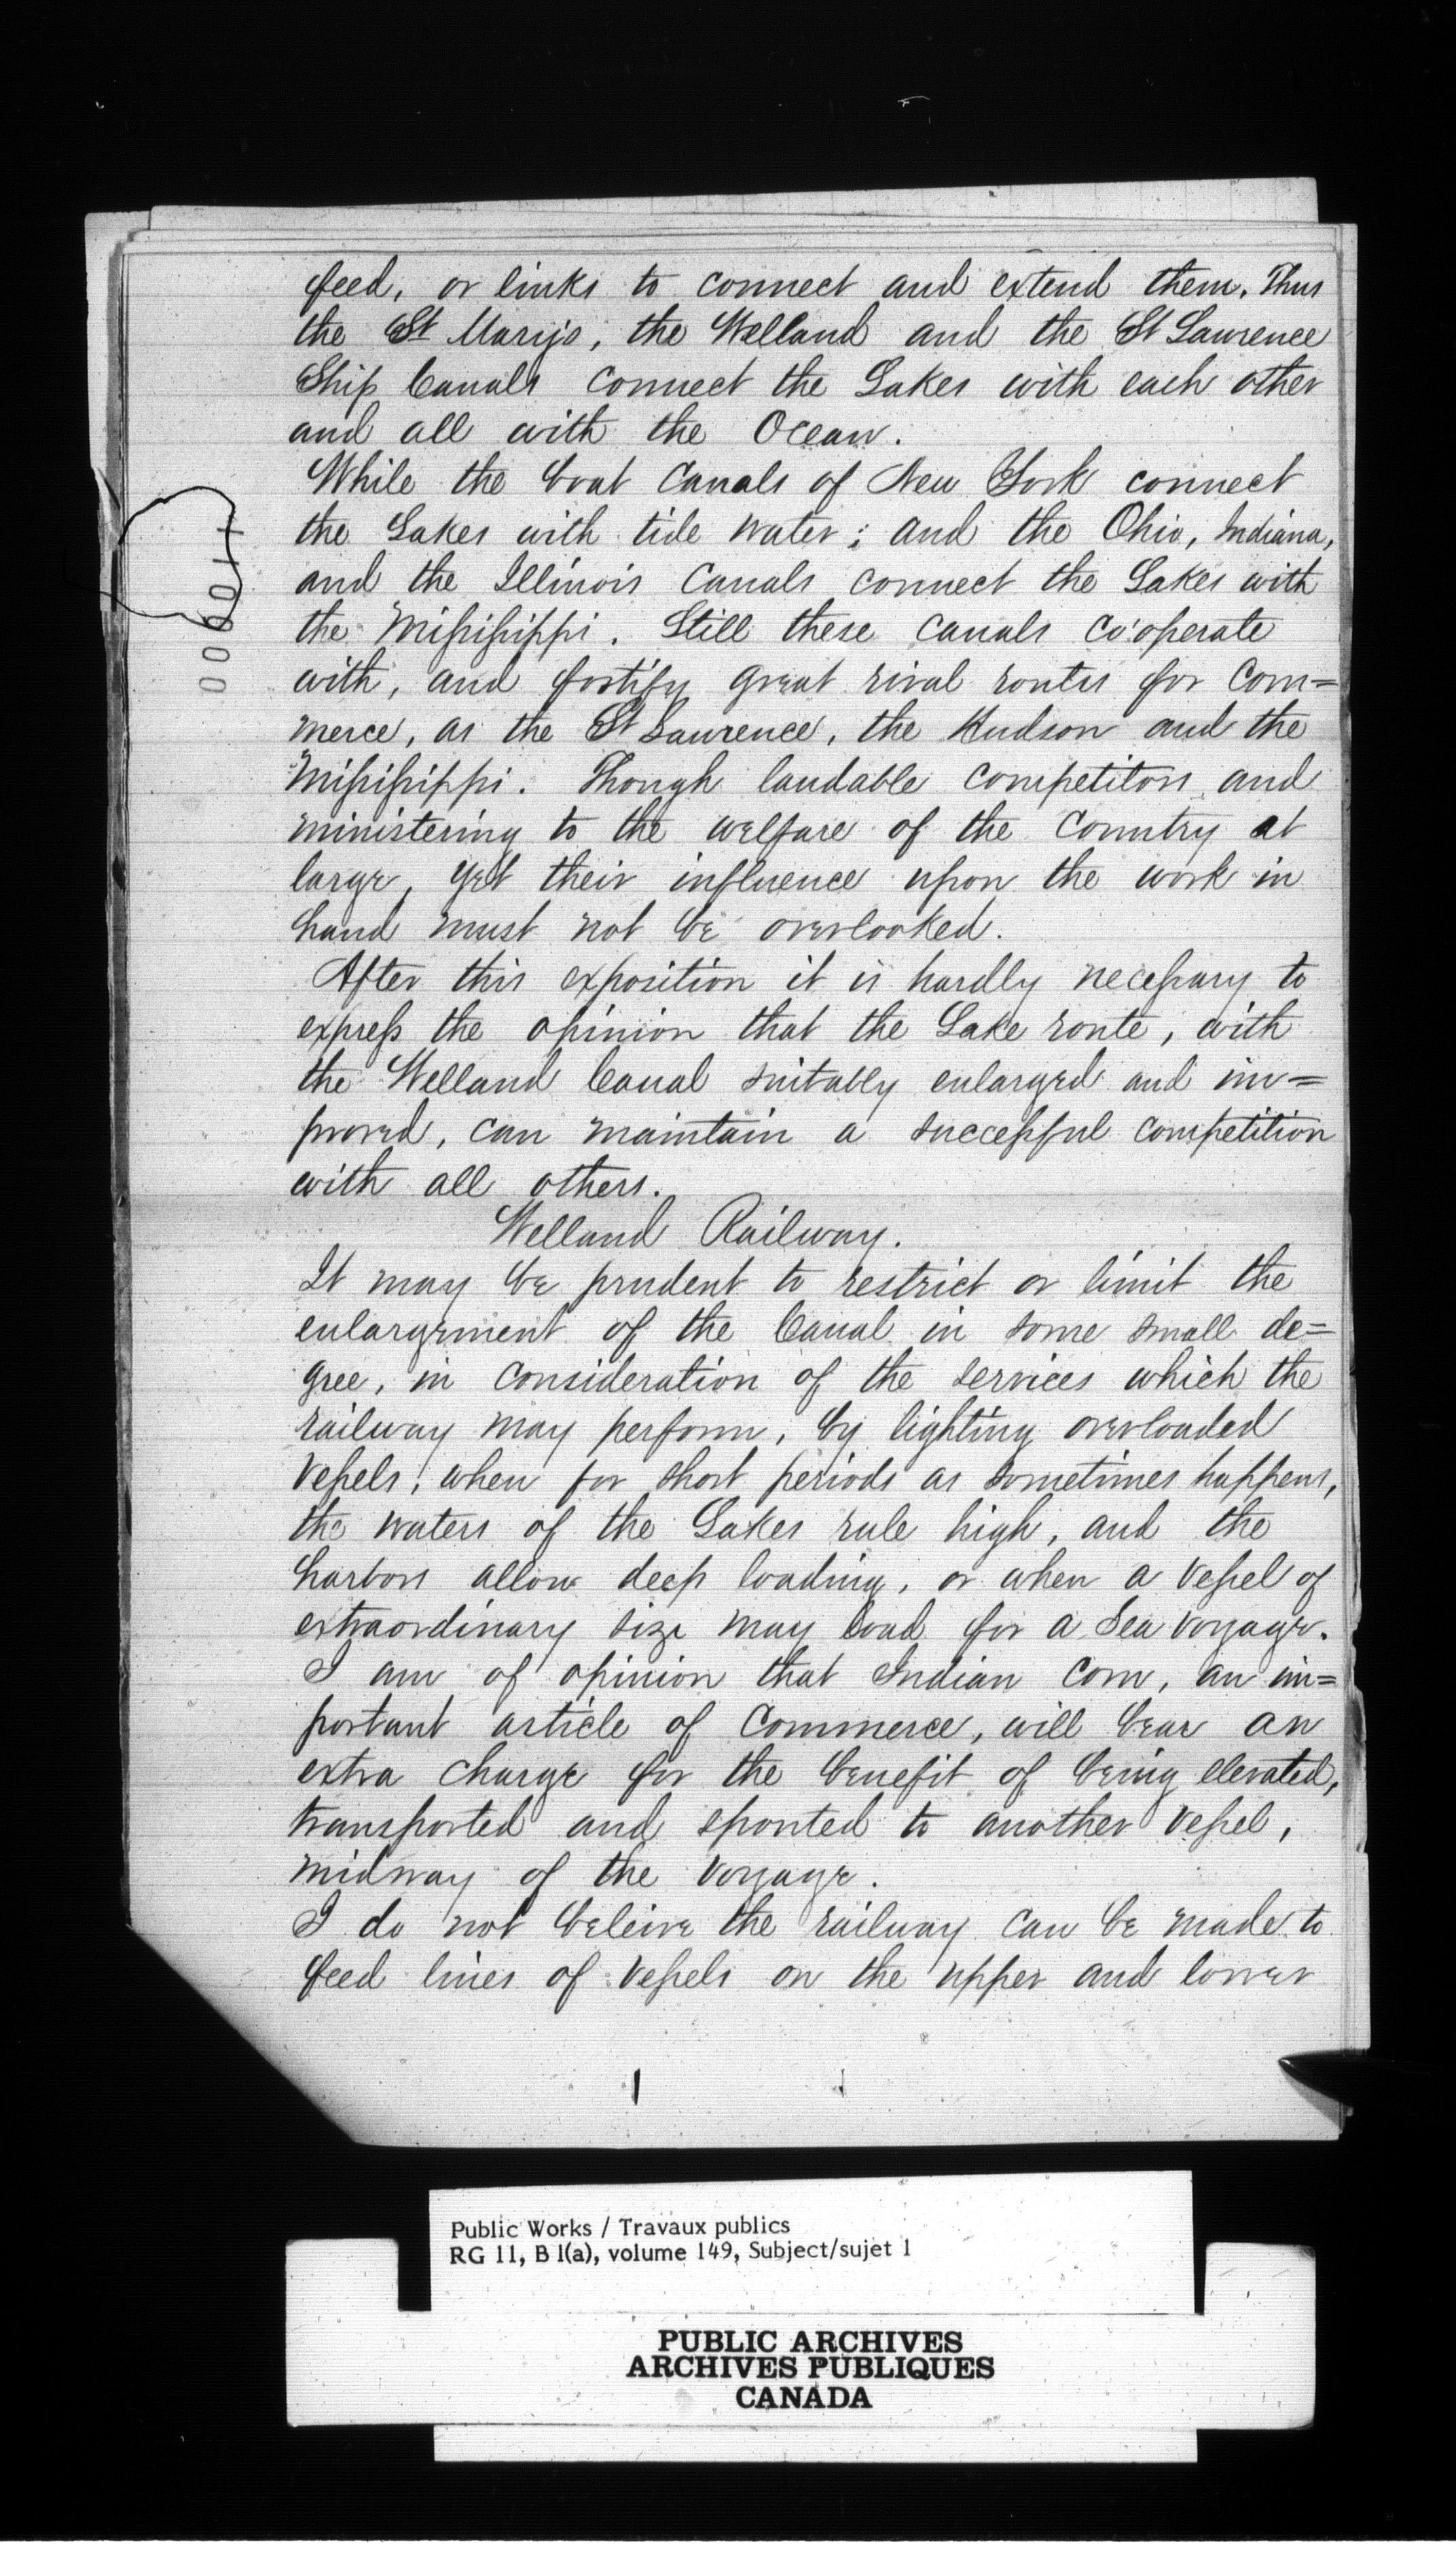 feed, or links to connect and extend them. Thus
the St Mary's, the Welland and the St Lawrence
Ship Canals connect the Lakes with each other
and all with the Ocean.
While the boat Canals of New York connect
the Lakes with tide water; and the Ohio, Indiana,
and the Illinois Canals connect the Lakes with
the Mississippi. Still these canals co'operate
with, and fortify great rival routes for Com=
merce, as the St Lawrence, the Hudson and the
Mississippi. Though laudable competitors, and
ministering to the welfare of the Country at
large, yet their influence upon the work in
hand must not be overlooked.
After this exposition it is hardly necessary to
express the opinion that the Lake route, with
the Welland Canal suitably enlarged and im=
proved, can maintain a successful competition
with all others.
Welland Railway.
It may be prudent to restrict or limit the
enlargement of the Canal in some small de=
gree, in consideration of the services which the
railway may perform, by lighting overloaded
vessels, when for short periods as sometimes happens,
the waters of the Lakes rule high, and the
harbors allow deep loading, or when a vessel of
extraordinary size may load for a Sea voyage.
I am of opinion that Indian Corn, an im=
portant article of Commerce, will bear an
extra charge for the benefit of being elevated,
transported and spouted to another vessel,
midway of the voyage.
I do not beleive the railway can be made to
feed lines of vessels on the upper and lower
000011
Public Works / Travaux publics
RG 11, B 1(a), volume 149, Subject/sujet 1
PUBLIC ARCHIVES
ARCHIVES PUBLIQUES
CANADA